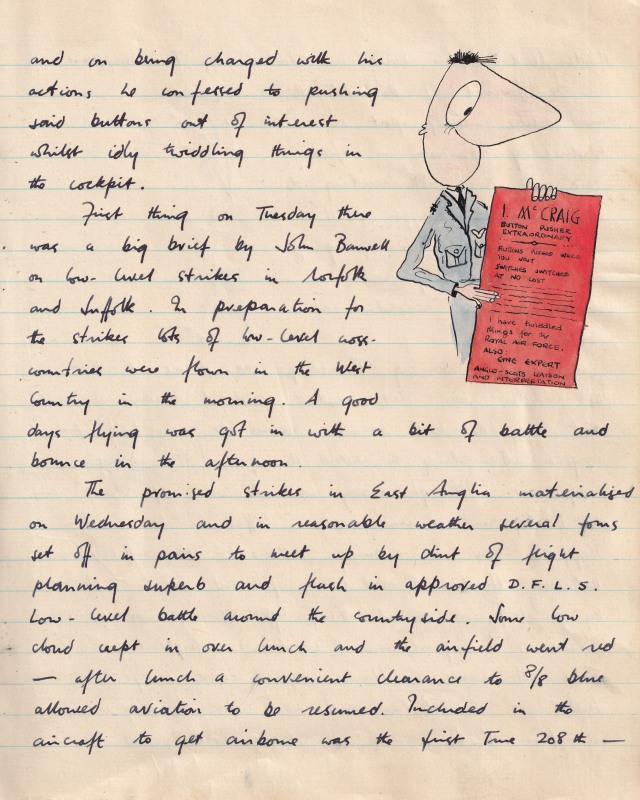 and on being charged with his
actions he confessed to pushing
said buttons out of interest
whilst idly twiddling things in
the cockpit.
First thing on Tuesday there
was a big brief by John Barwell
on low-level strikes in Norfolk
and Suffolk. In preparation for
the strikes lots of low-level cross-
countries were flown in the West
Country in the morning. A good
days flying was got in with a bit of battle and
bounce in the afternoon.
The promised strikes in East Anglia materialised
on Wednesday and in reasonable weather several fours
set off in pairs to meet up by dint of flight
planning superb and flash in approved D.F.L.S.
low-level battle around the countryside. Some low
cloud crept in over lunch and the airfield went red
— after lunch a convenient clearance to 8/8 blue
allowed aviation to be resumed. Included in the
aircraft to get airborne was the first True 208th —
I. McCRAIG
BUTTON PUSHER
EXTRAORDINARY
BUTTONS PUSHED WHILE
YOU WAIT
SWITCHES SWITCHED
AT NO COST
I have twiddled
things for the
ROYAL AIR FORCE.
ALSO:
EXPERT
ANGLO-SCOTS LIAISON
AND INTERPRETATION